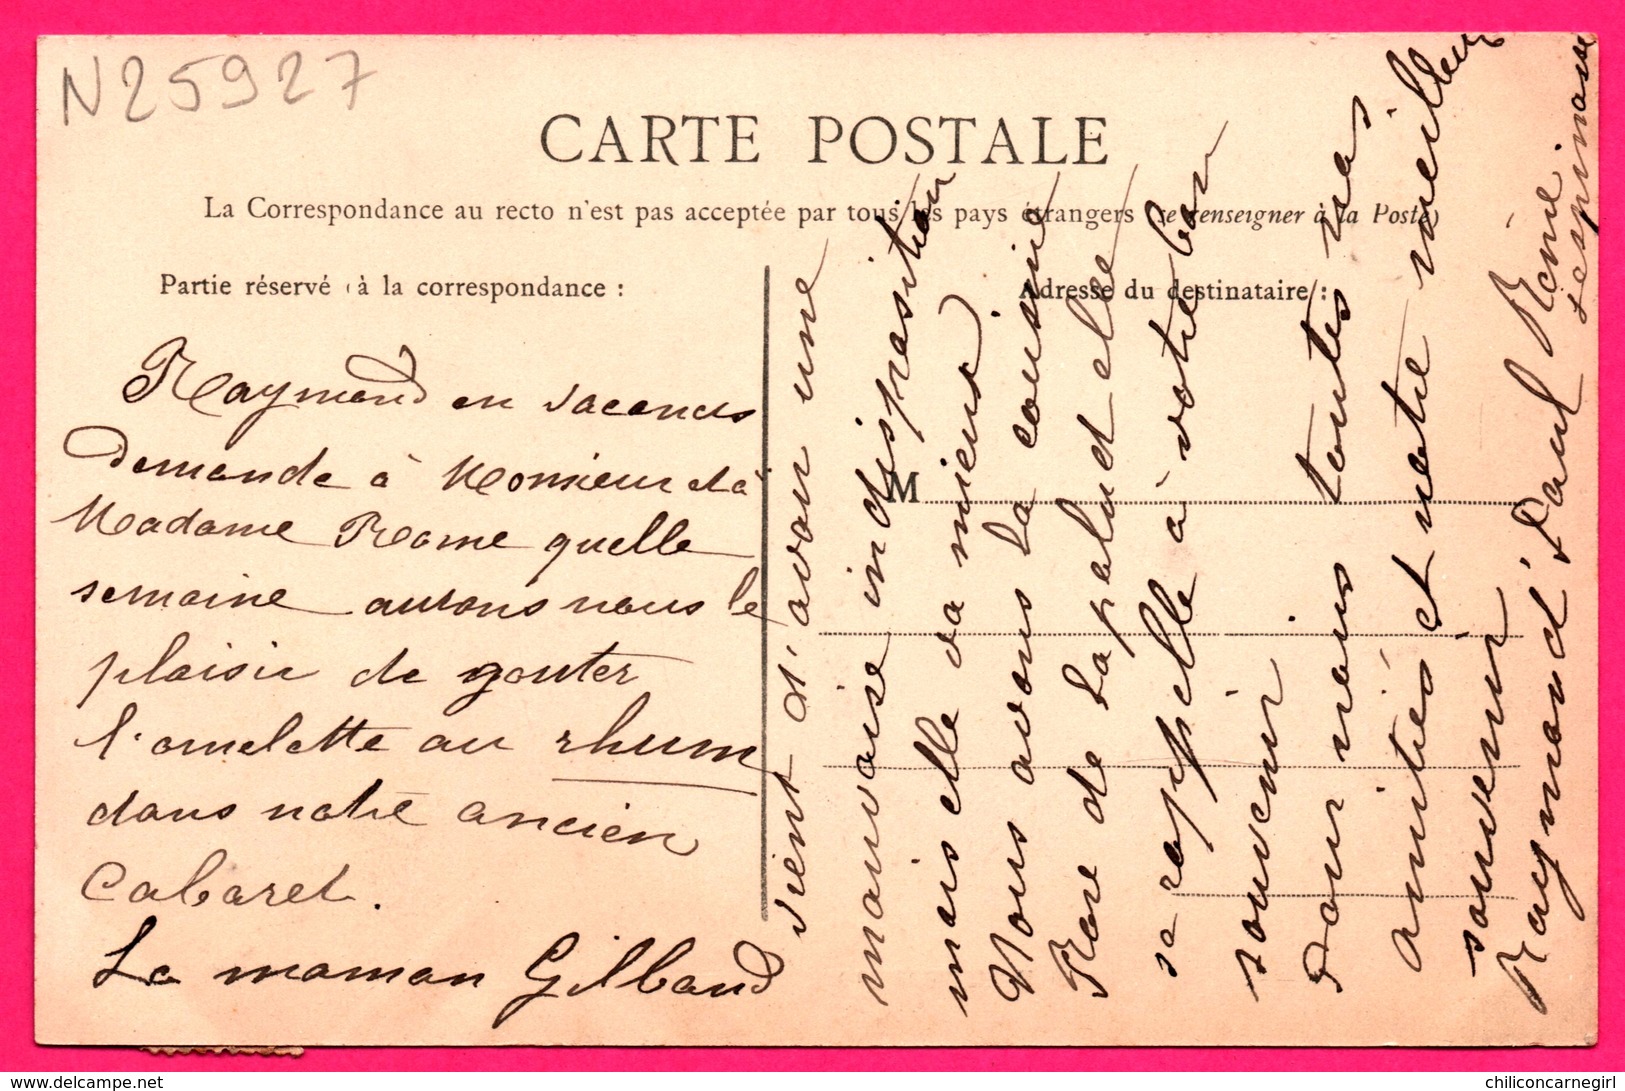 N25927
CARTE POSTALE
La Correspondance au recto n'est pas acceptée par tous les pays étrangers (se renseigner à la Poste)
Partie réservé à la correspondance :
Adresse du destinataire :
M
Raymond en vacances
demande à Monsieur et à
Madame Rome quelle
semaine aurons nous le
plaisir de gouter
l'omelette au rhum
dans notre ancien
Cabaret.
La maman Gilbaud
vient d'avoir une
mauvaise indisposition
mais elle va mieux
Nous avons la cousine
de Lapalud elle
se rappelle à votre bon
souvenir.
Pour nous toutes nos
amitiés et notre meilleur
souvenir
Raymond Paul Réné.
Lespinasse
chiliconcarnegirl
www.delcampe.net